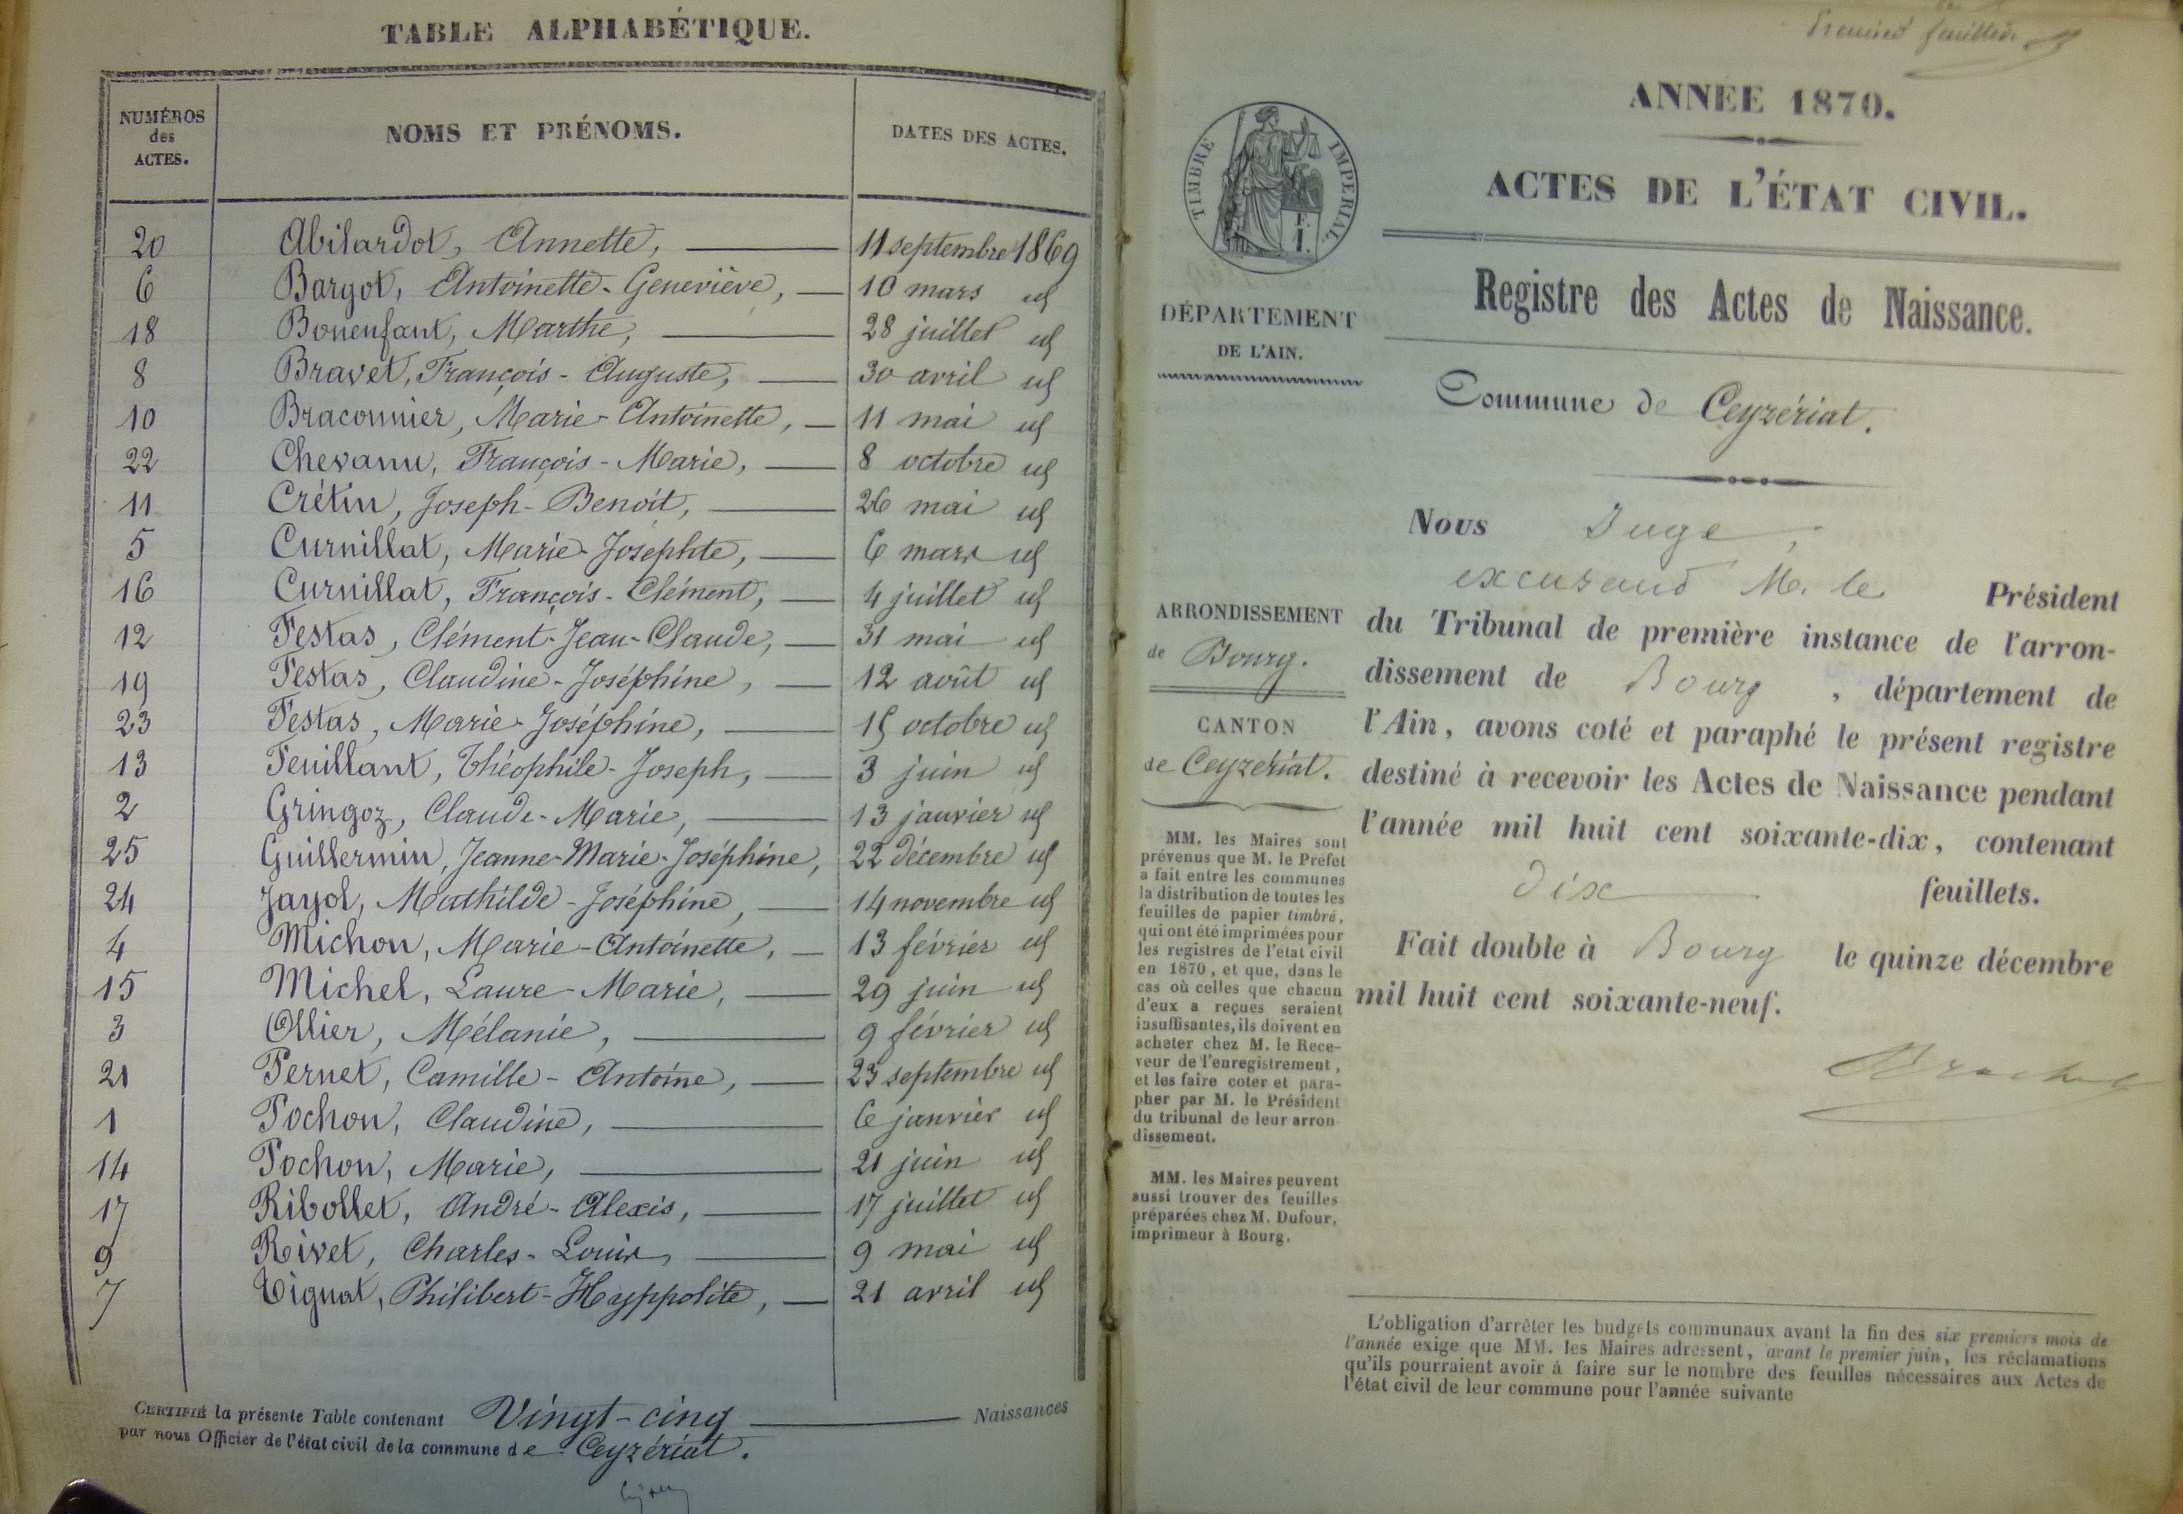 TABLE ALPHABÉTIQUE.
NUMÉROS
des
ACTES.
NOMS ET PRÉNOMS.
DATES DES ACTES.
20 Abilardot, Annette, 11 septembre 1869
6 Bargot, Antoinette-Geneviève, 10 mars id
18 Bonenfant, Marthe, 28 juillet id
8 Bravet, François-Auguste, 30 avril id
10 Braconnier, Marie-Antoinette, 11 mai id
22 Chevanu, François-Marie, 8 octobre id
11 Crétin, Joseph-Benoit, 26 mai id
5 Curnillat, Marie-Josephte, 6 mars id
16 Curnillat, François-Clément, 4 juillet id
12 Festas, Clément-Jean-Claude, 31 mai id
19 Festas, Claudine-Joséphine, 12 août id
23 Festas, Marie-Joséphine, 15 octobre id
13 Feuillant, Théophile-Joseph, 3 juin id
2 Gringoz, Claude-Marie, 13 janvier id
25 Guillermin, Jeanne-Marie-Joséphine, 22 décembre id
24 Jayol, Mathilde-Joséphine, 14 novembre id
4 Michon, Marie-Antoinette, 13 février id
15 Michel, Laure-Marie, 29 juin id
3 Ollier, Mélanie, 9 février id
21 Pernet, Camille-Antoine, 23 septembre id
1 Pochon, Claudine, 6 janvier id
14 Pochon, Marie, 21 juin id
17 Ribollet, André-Alexis, 17 juillet id
9 Rivet, Charles-Louis, 9 mai id
7 Tignat, Philibert-Hyppolite, 21 avril id
CERTIFIÉ la présente Table contenant Vingt-cinq Naissances
par nous Officier de l'état civil de la commune de Ceyzériat.
Premier feuillet
ANNÉE 1870.
TIMBRE IMPÉRIAL.
ACTES DE L'ÉTAT CIVIL.
Registre des Actes de Naissance.
DÉPARTEMENT
DE L'AIN.
Commune de Ceyzériat.
ARRONDISSEMENT
de Bourg.
CANTON
de Ceyzériat.
MM. les Maires sont
prévenus que M. le Préfet
a fait entre les communes
la distribution de toutes les
feuilles de papier timbré,
qui ont été imprimées pour
les registres de l'état civil
en 1870, et que, dans le
cas où celles que chacun
d'eux a reçues seraient
insuffisantes, ils doivent en
acheter chez M. le Rece-
veur de l'enregistrement,
et les faire coter et para-
pher par M. le Président
du tribunal de leur arron-
dissement.
MM. les Maires peuvent
aussi trouver des feuilles
préparées chez M. Dufour,
imprimeur à Bourg.
Nous Juge,
excusant M. le Président
du Tribunal de première instance de l'arron-
dissement de Bourg, département de
l'Ain, avons coté et paraphé le présent registre
destiné à recevoir les Actes de Naissance pendant
l'année mil huit cent soixante-dix, contenant
dix feuillets.
Fait double à Bourg le quinze décembre
mil huit cent soixante-neuf.
L'obligation d'arrêter les budgets communaux avant la fin des six premiers mois de
l'année exige que MM. les Maires adressent, avant le premier juin, les réclamations
qu'ils pourraient avoir à faire sur le nombre des feuilles nécessaires aux Actes de
l'état civil de leur commune pour l'année suivante